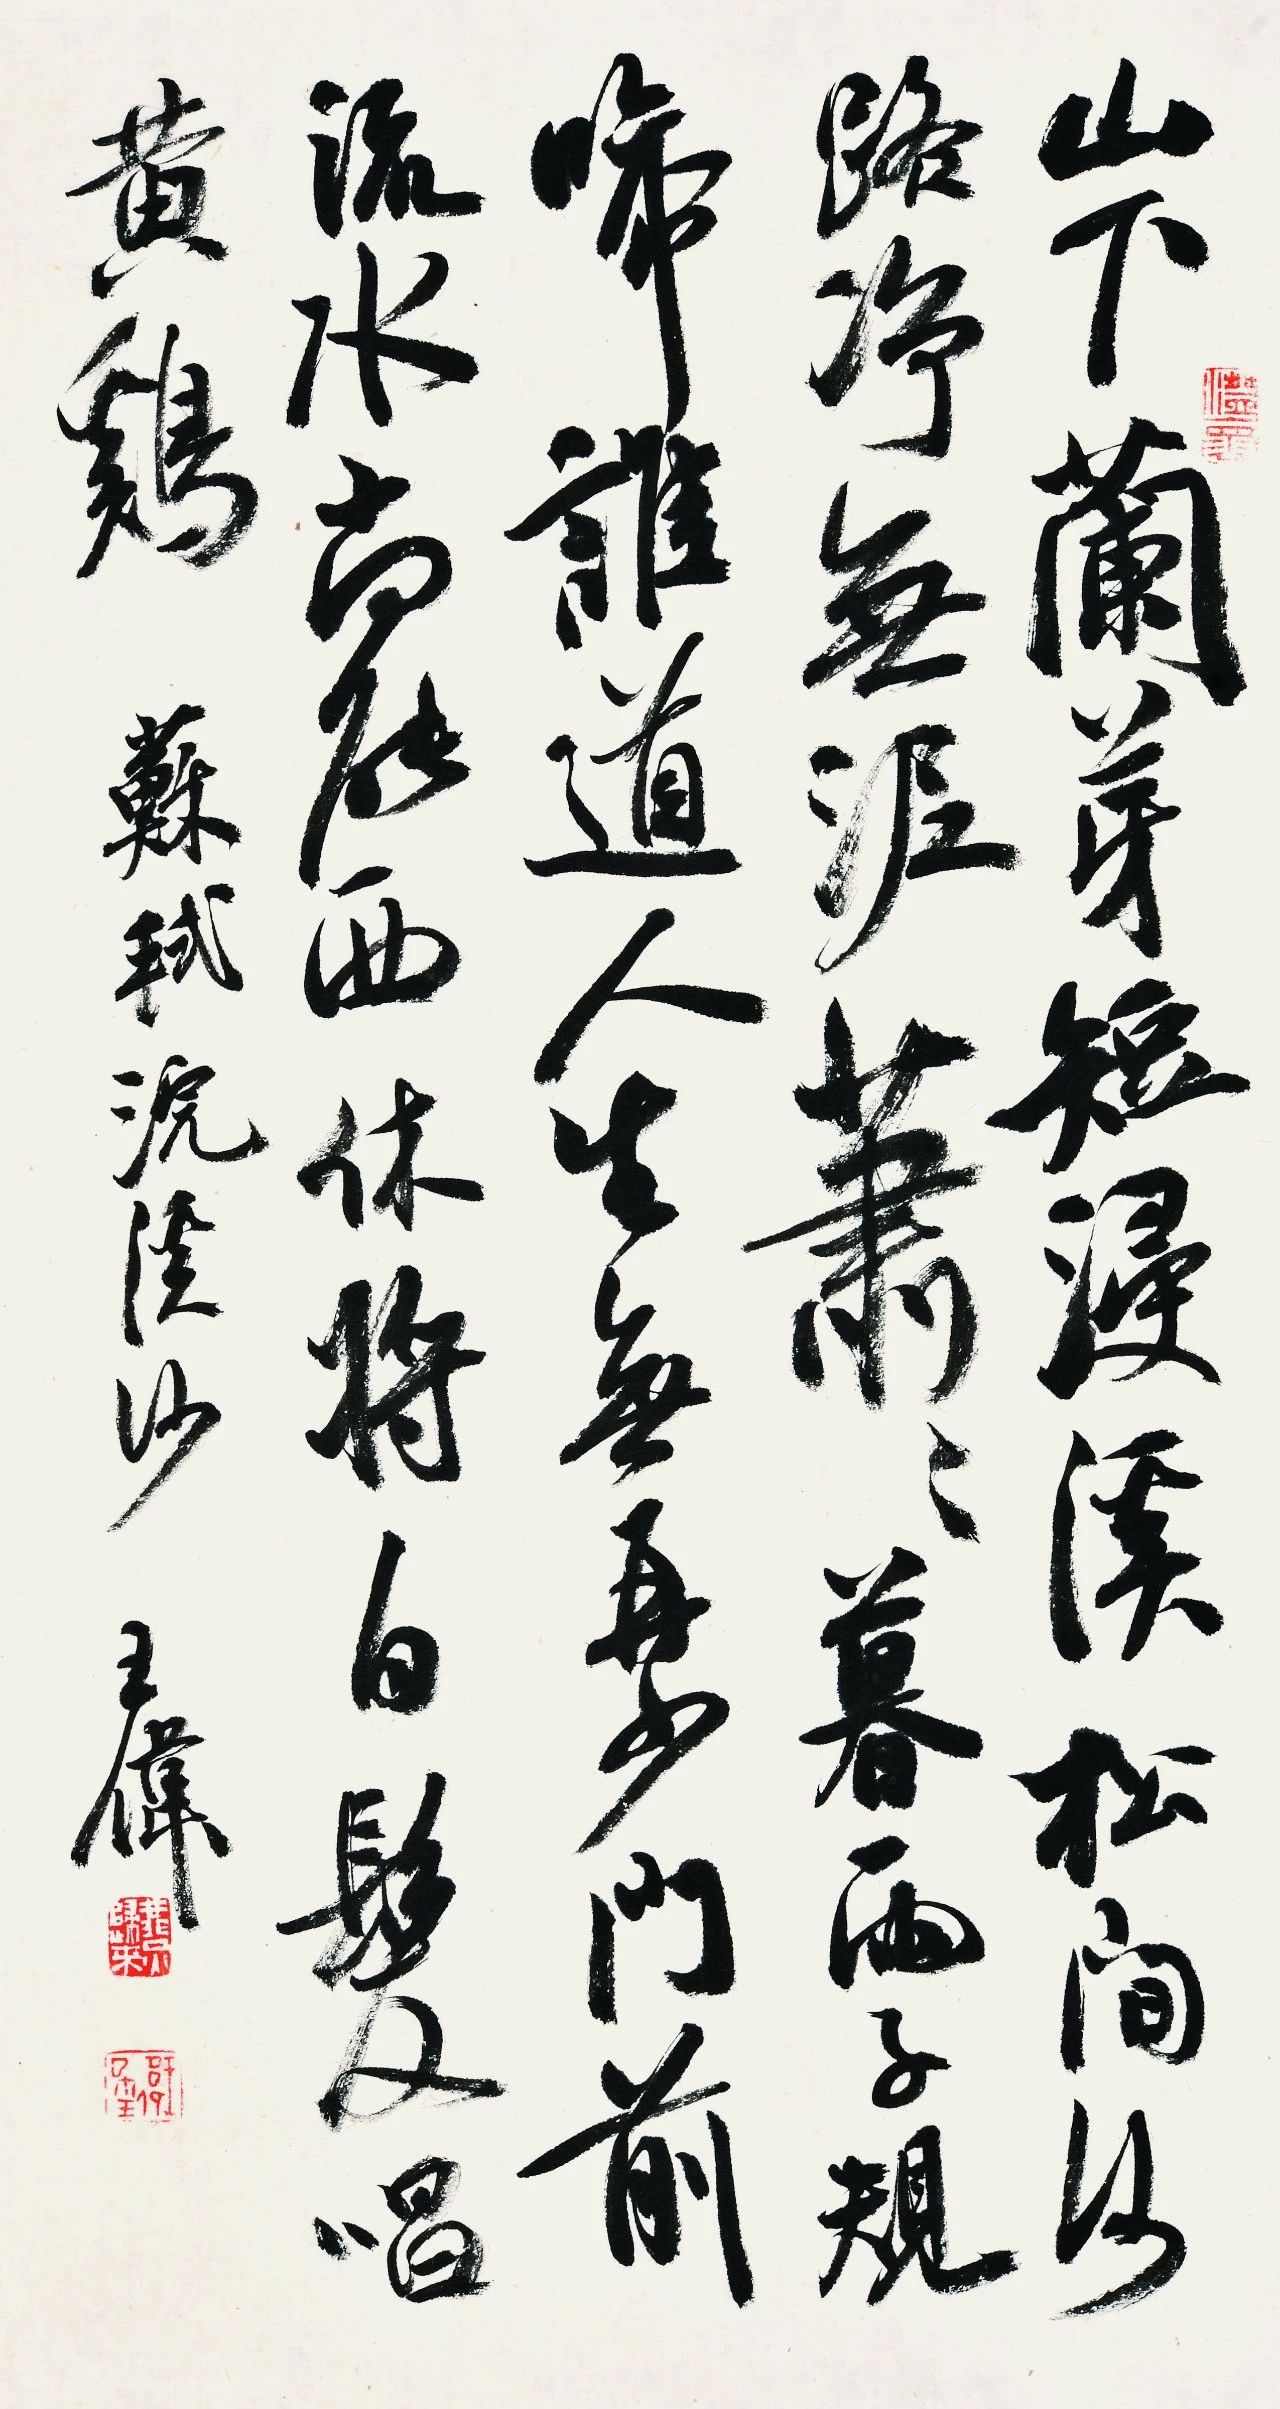 山下蘭芽短浸溪松間沙
路净無泥蕭〻暮雨子規
啼誰道人生無再少門前
流水尚能西休將白髮唱
黄鷄
蘇軾浣溪沙
王偉